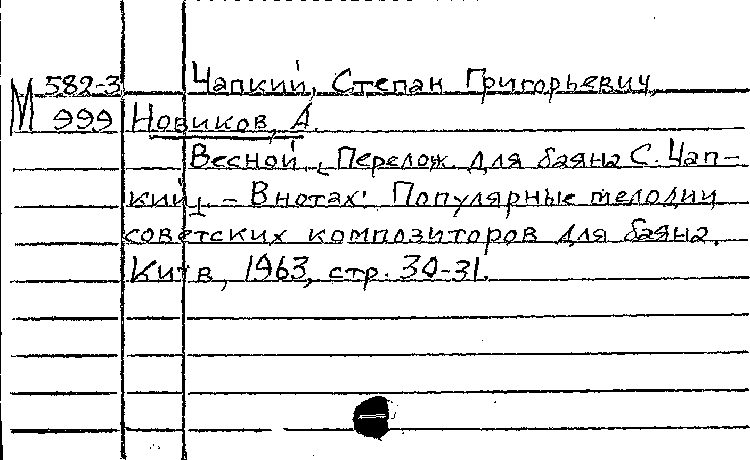 М 582-3 Чапкий, Степан Григорьевич,
999 Новиков, А.
Весной [Перелож. для баяна С. Чап-
кий] - В нотах: Популярные мелодии
советских композиторов для баяна.
Киев, 1963, стр. 30-31.